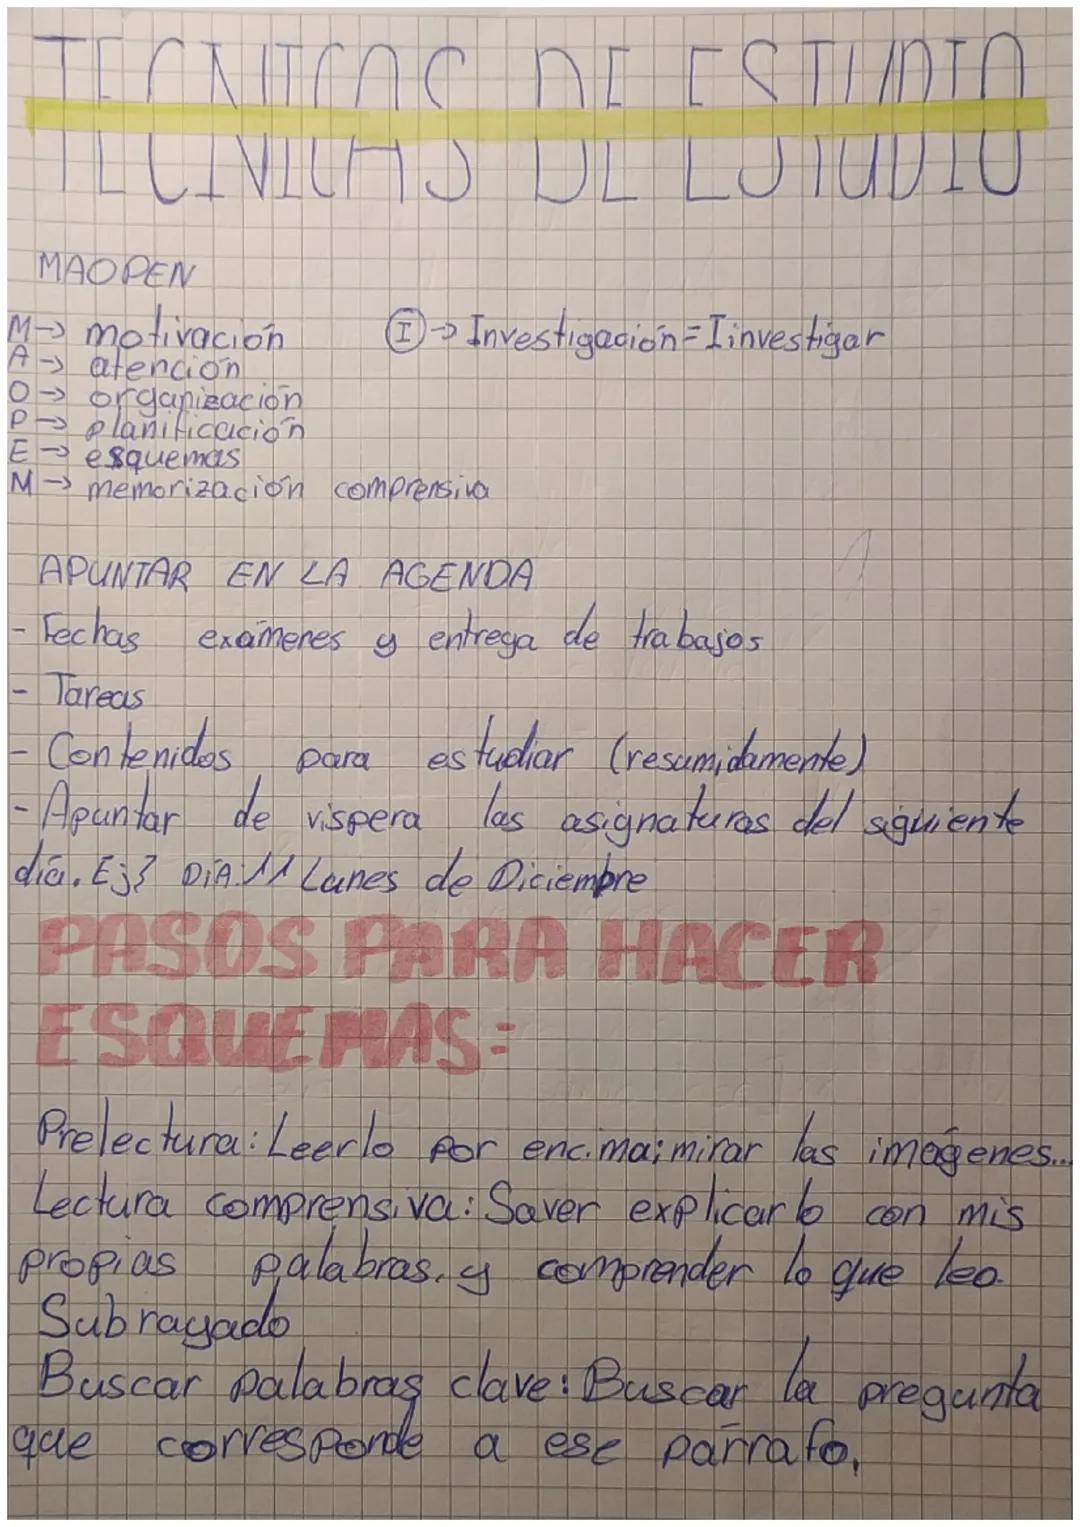 TECNICAS DE ESTUDIO
MAOPEN
M→ motivación
Ⓘ→ Investigación = Iinvestigar
A→ atención
O→ organización
P→ planificación
E→ esquemas
M→ memorización comprensiva
APUNTAR EN LA AGENDA
- Fechas exámenes y entrega de trabajos
- Tareas
- Contenidos para estudiar (resumidamente)
- Apuntar de vispera las asignaturas del siguiente
día. Ej} DíA:11 Lunes de Diciembre
PASOS PARA HACER
ESQUEMAS:
Prelectura: Leerlo por encima; mirar las imágenes...
Lectura comprensiva: Saver explicarlo con mis
propias palabras. y comprender lo que leo.
Subrayado
Buscar palabras clave: Buscar la pregunta
que corresponde a ese párrafo.